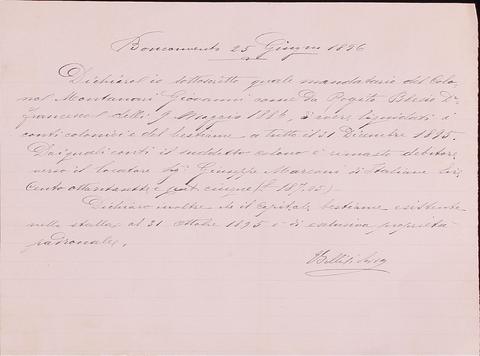 Buonconvento 25 Giugno 1896
Dichiaro io sottoscritto quale mandatario del Colo-
no Montanari Giovanni come da
Francesco delli 9 Maggio 1886, d'avere liquidati i
conti colonici e del bestiame a tutto il 31 Dicembre 1895.
Dai quali conti il suddetto colono è rimasto debitore
verso il locatore Sig Giuseppe Marconi di Italiane Lire
Cento ottantasette e cinque
Dichiaro inoltre che il Capitale bestiame esistente
nella stalla, al 31 Ottobre 1895 è di esclusiva proprietà
padronale.